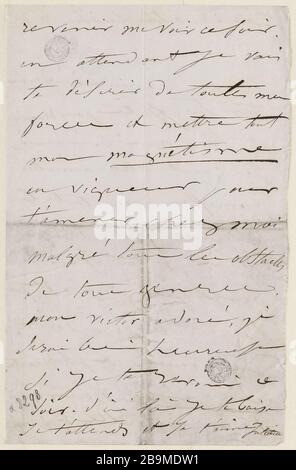 revenir me voir ce soir.
en attendant je vais
te désirer de toutes mes
forces et mettre tout
mon magnétisme
en vigueur pour
t'amener chez moi
malgré tous les obstacles
de tout genre.
mon victor adoré, je
serai bien heureuse
si je te revois ce
soir. d'ici là je te baise
je t'attends et je t'aime
Juliette
a 8298
alamy
Image ID: 2B9MDW1
www.alamy.com